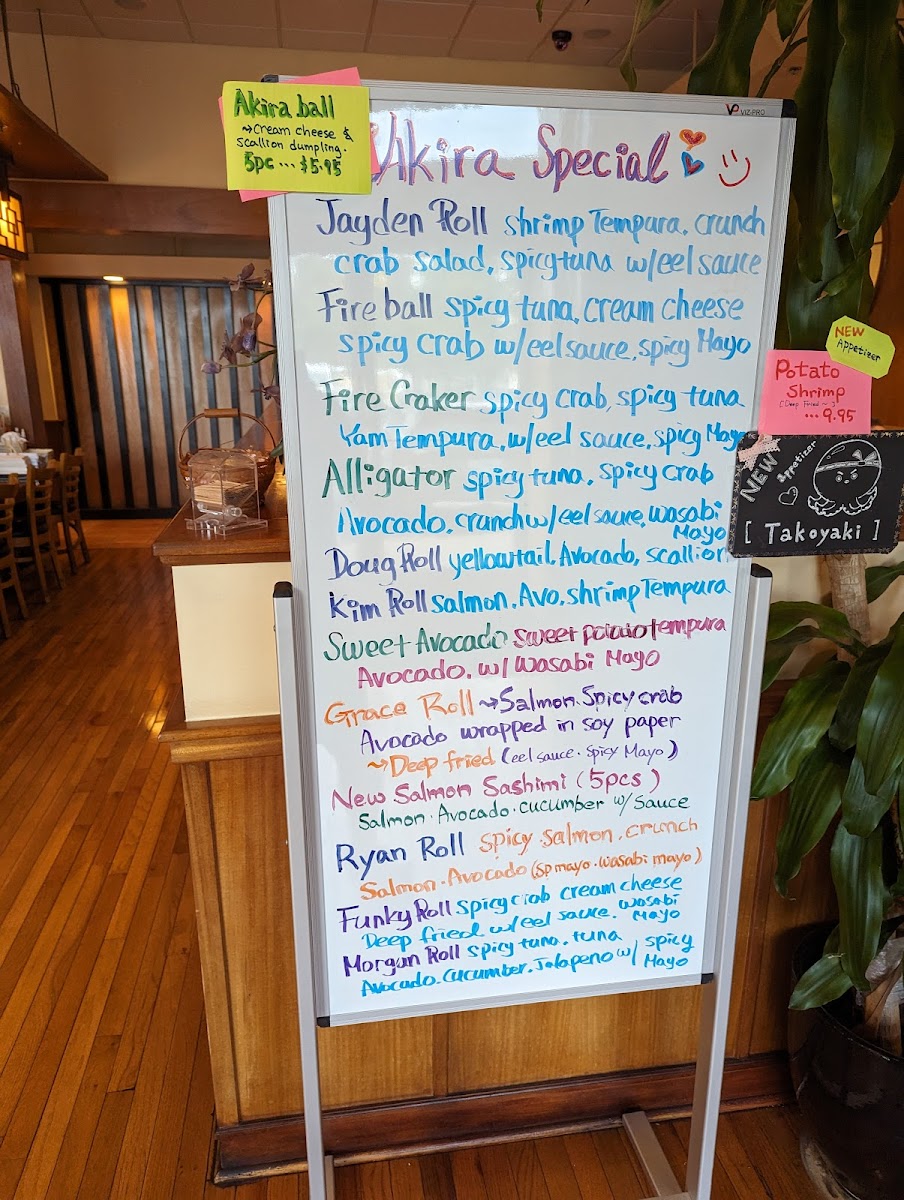 Akira ball
→Cream cheese &
scallion dumpling.
5pc ... $5.95
VIZ-PRO
Akira Special
Jayden Roll shrimp Tempura, crunch
crab salad, spicy tuna w/eel sauce
Fire ball spicy tuna, cream cheese
spicy crab w/eel sauce, spicy Mayo
Fire Craker spicy crab, spicy tuna
Yam Tempura, w/eel sauce, spicy Mayo
Alligator spicy tuna, spicy crab
Avocado, crunch w/eel sauce, wasabi
Mayo
Doug Roll yellowtail, Avocado, scallion
Kim Roll salmon, Avo, shrimp Tempura
Sweet Avocado sweet potato tempura
Avocado. w/ wasabi Mayo
Grace Roll →Salmon. Spicy crab
Avocado wrapped in soy paper
→Deep fried (eel sauce · spicy Mayo)
New Salmon Sashimi (5pcs)
Salmon · Avocado · cucumber w/ sauce
Ryan Roll spicy · salmon, crunch
Salmon · Avocado (sp mayo · wasabi mayo)
Funky Roll spicy crab cream cheese
Deep fried w/eel sauce. wasabi
Mayo
Morgun Roll spicy tuna. tuna
Avocado. cucumber. Jalapeno w/ spicy
Mayo
NEW
Appetizer
Potato
Shrimp
(Deep Fried ~)
... 9.95
NEW
appetizer
[ Takoyaki ]